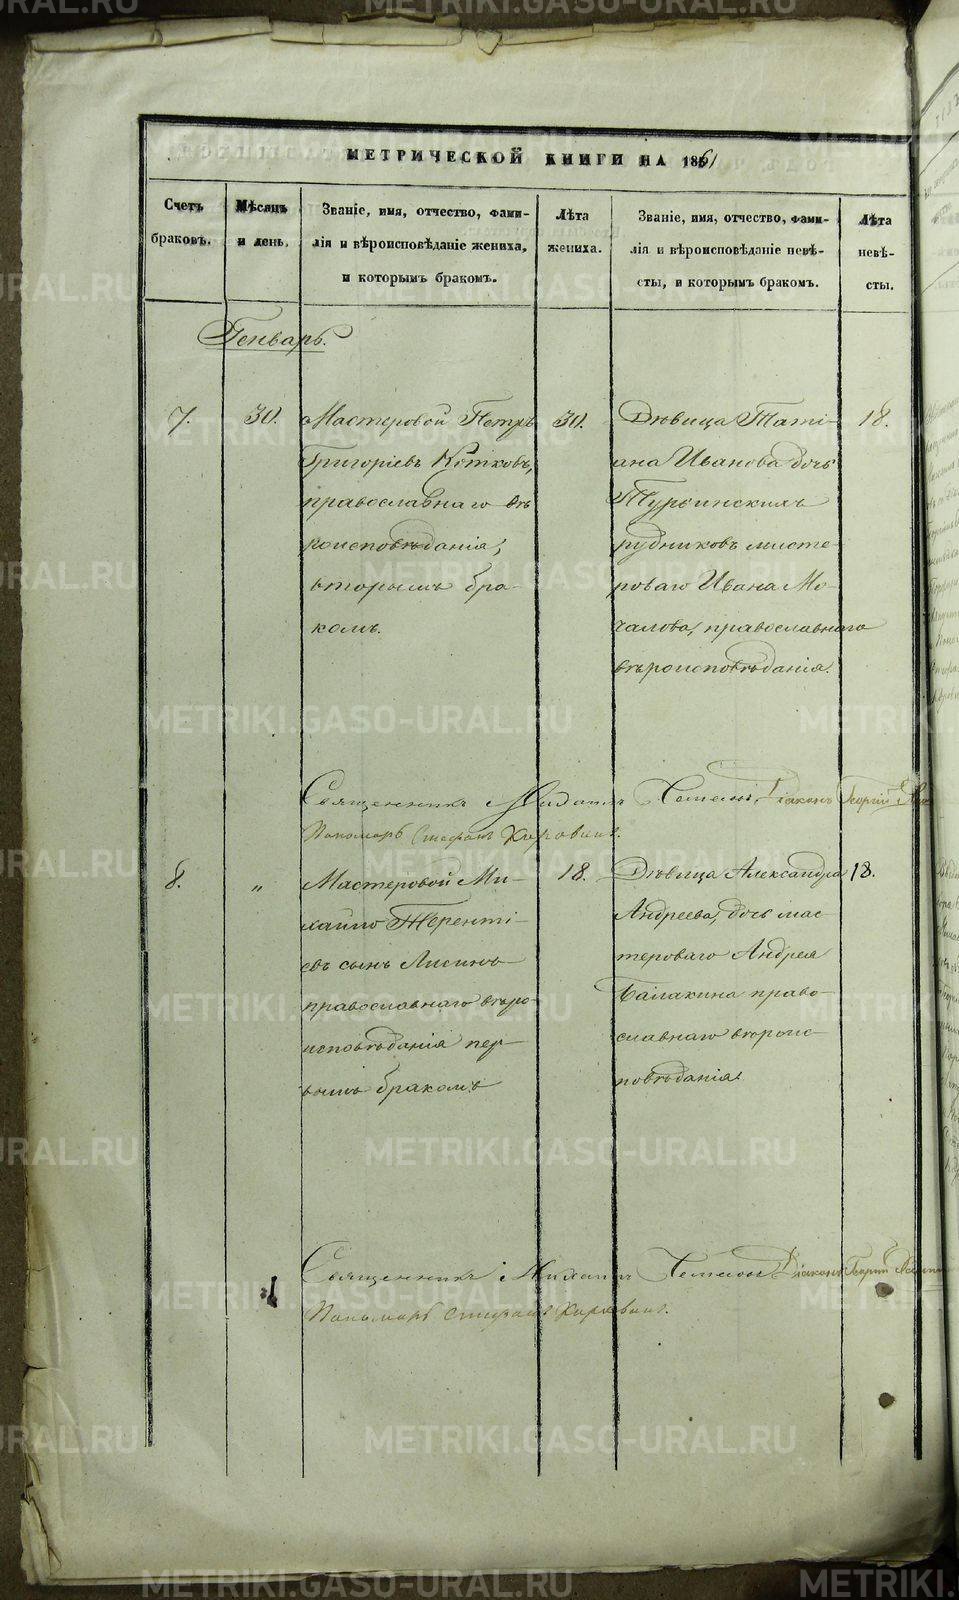 МЕТРИЧЕСКОЙ КНИГИ НА 1861
Счетъ браковъ.
Мѣсяцъ и день.
Званіе, имя, отчество, фами-
лія и вѣроисповѣданіе жениха,
и которымъ бракомъ.
Лѣта жениха.
Званіе, имя, отчество, фами-
лія и вѣроисповѣданіе невѣ-
сты, и которымъ бракомъ.
Лѣта невѣ-
сты.
Генварь.
7.
30.
Мастеровой Петръ
Григоріевъ Котковъ,
православнаго вѣ
роисповѣданія,
вторымъ бра-
комъ.
30.
Дѣвица Таті-
ана Иванова дочь
Турьинскихъ
рудниковъ масте-
роваго Ивана Мо-
чалова, православнаго
вѣроисповѣданія.
18.
Священникъ Михаилъ Діаконъ Георгій
Пономарь Стефанъ
8.
"
Мастеровой Ми-
хайло Теренті-
евъ сынъ Лисинъ
православнаго вѣро
исповѣданія пер-
вымъ бракомъ
18.
Дѣвица Александра
Андреева, дочь мас-
тероваго Андрея
православ-
славнаго вѣроис-
повѣданія.
18.
Священникъ Михаилъ Діаконъ Георгій
Пономарь Стефанъ
METRIKI.GASO-URAL.RU